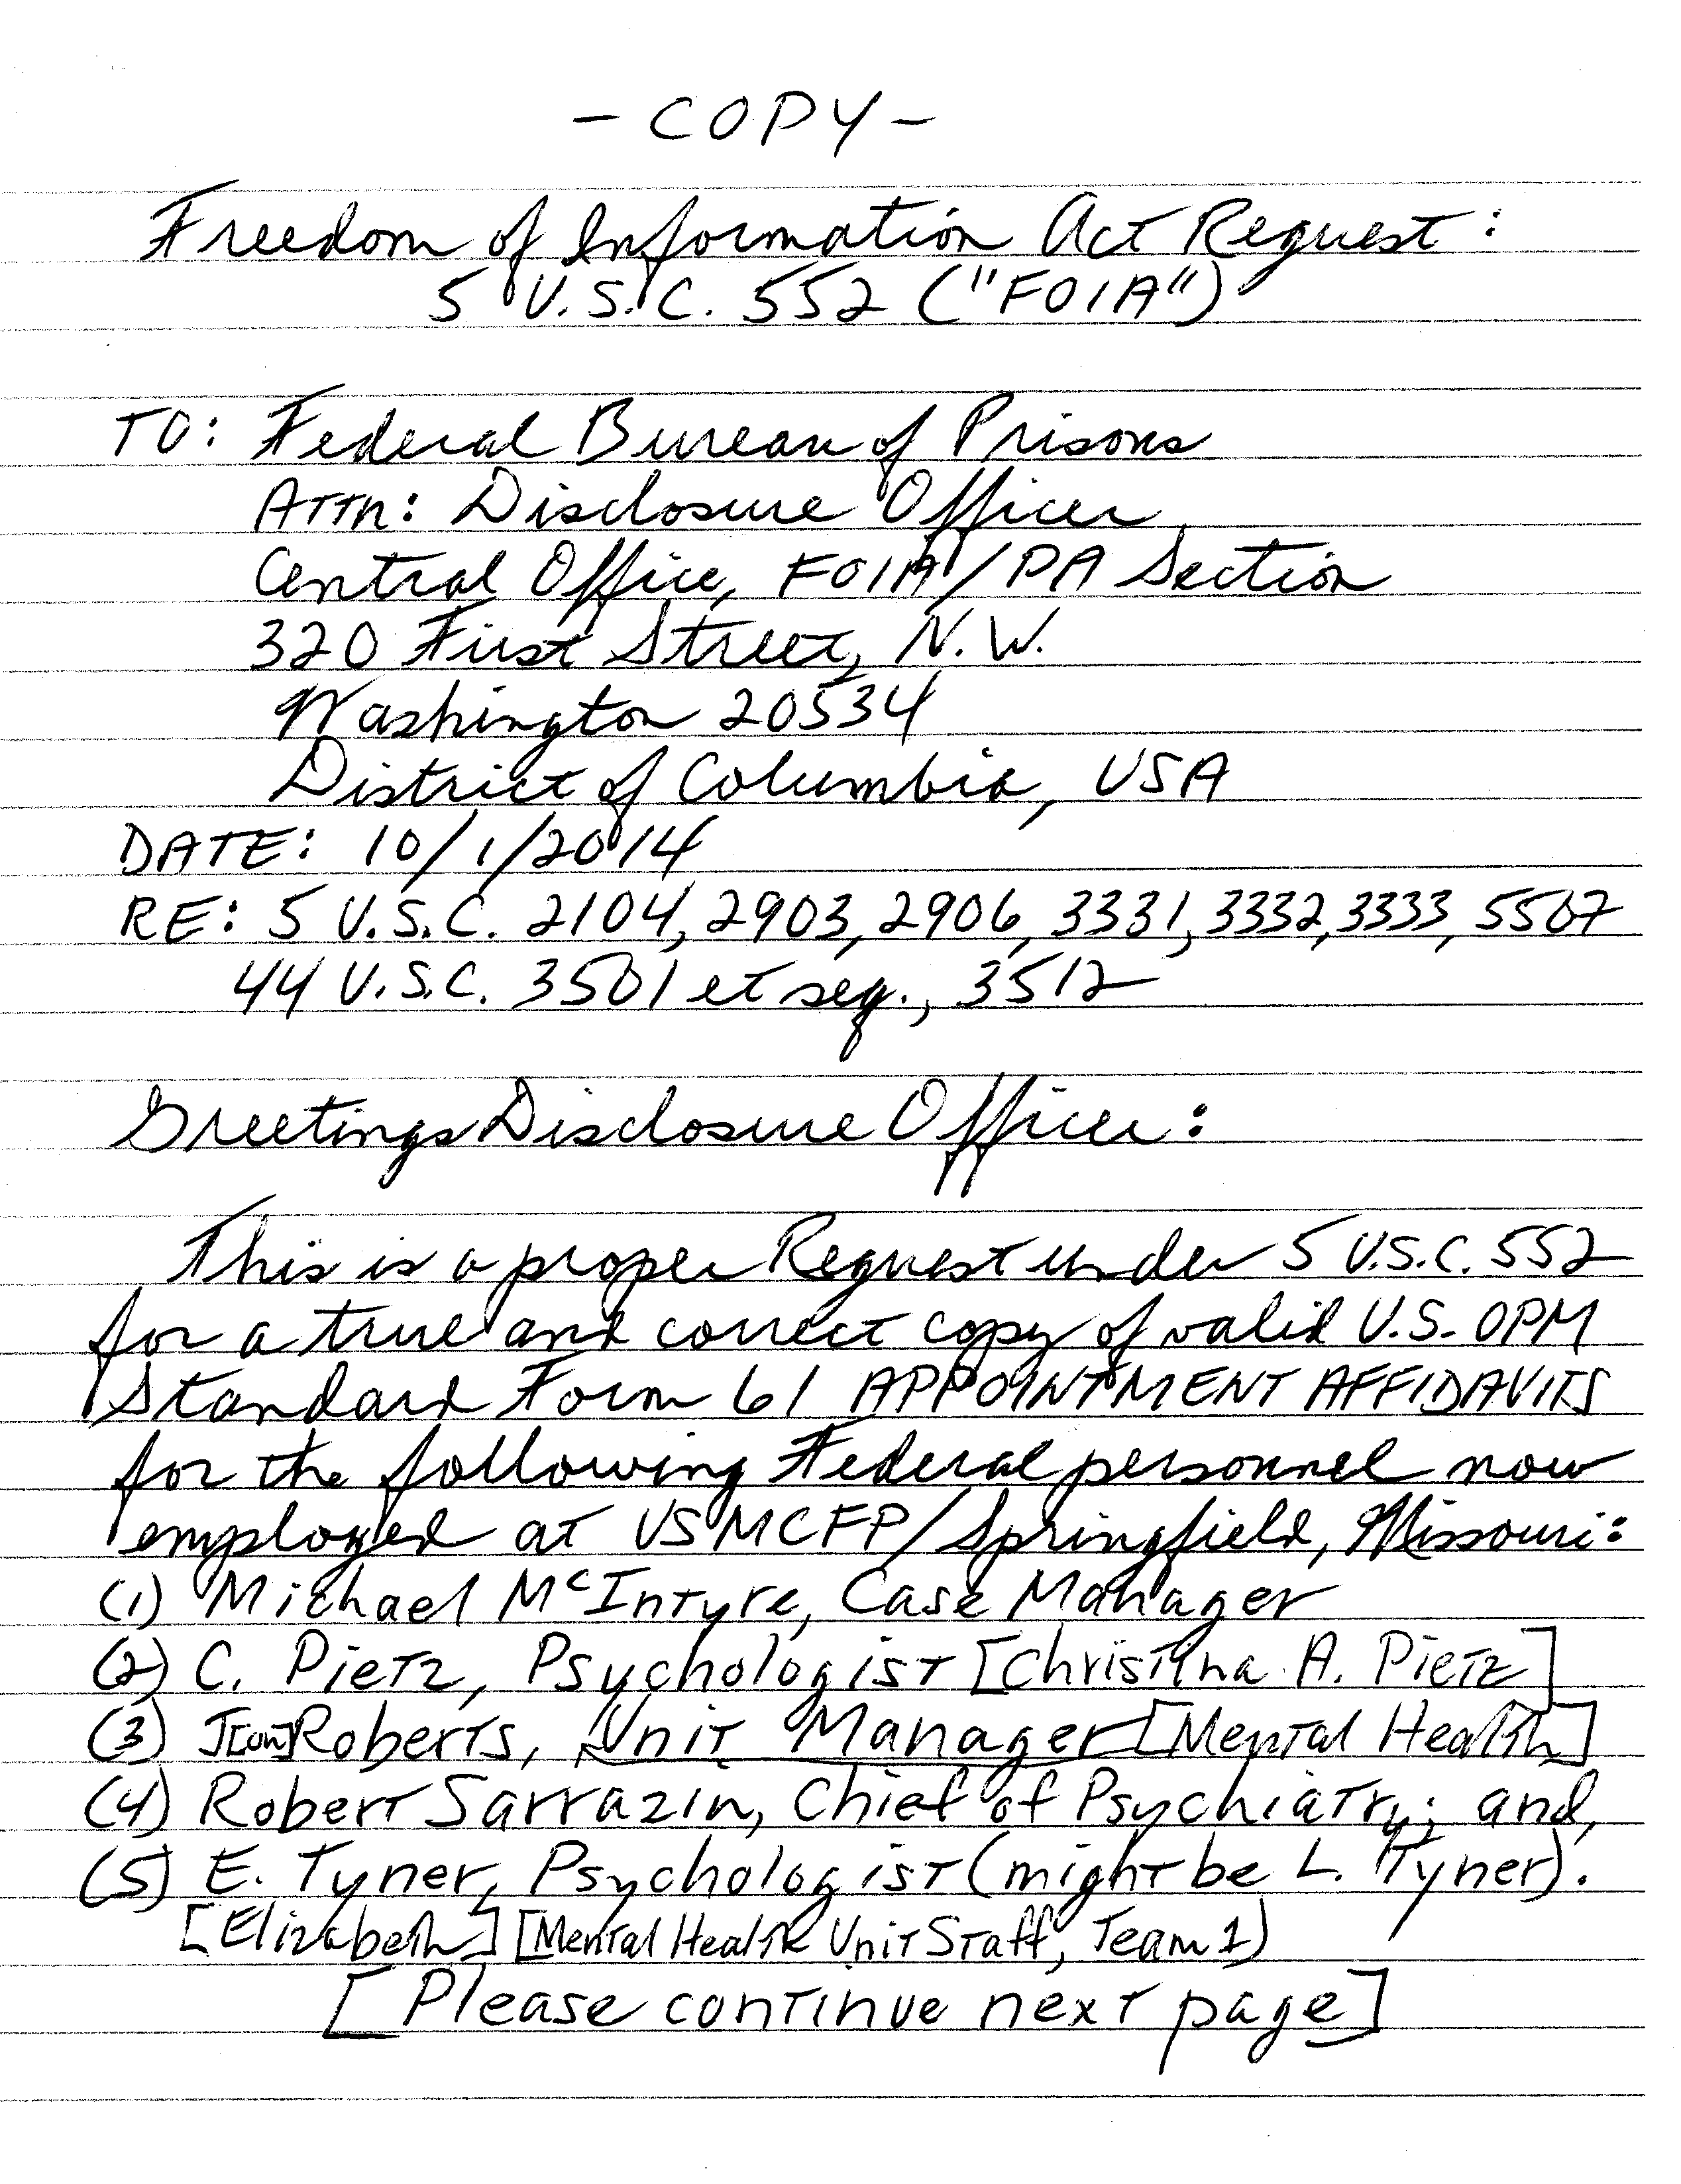 - COPY -
Freedom of Information Act Request:
5 U.S.C. 552 ("FOIA")
TO: Federal Bureau of Prisons
Attn: Disclosure Officer
Central Office, FOIA/PA Section
320 First Street, N.W.
Washington 20534
District of Columbia, USA
DATE: 10/1/2014
RE: 5 U.S.C. 2104, 2903, 2906, 3331, 3332, 3333, 5507
44 U.S.C. 3501 et seq., 3512
Greetings Disclosure Officer:
This is a proper Request under 5 U.S.C. 552
for a true and correct copy of valid U.S. OPM
Standard Form 61 APPOINTMENT AFFIDAVITS
for the following Federal personnel now
employed at USMCFP/Springfield, Missouri:
(1) Michael McIntyre, Case Manager
(2) C. Pietz, Psychologist [Christina A. Pietz]
(3) J[on] Roberts, Unit Manager [Mental Health]
(4) Robert Sarrazin, Chief of Psychiatry; and,
(5) E. Tyner, Psychologist (might be L. Tyner).
[Elizabeth] [Mental Health Unit Staff, Team 1)
[Please continue next page]